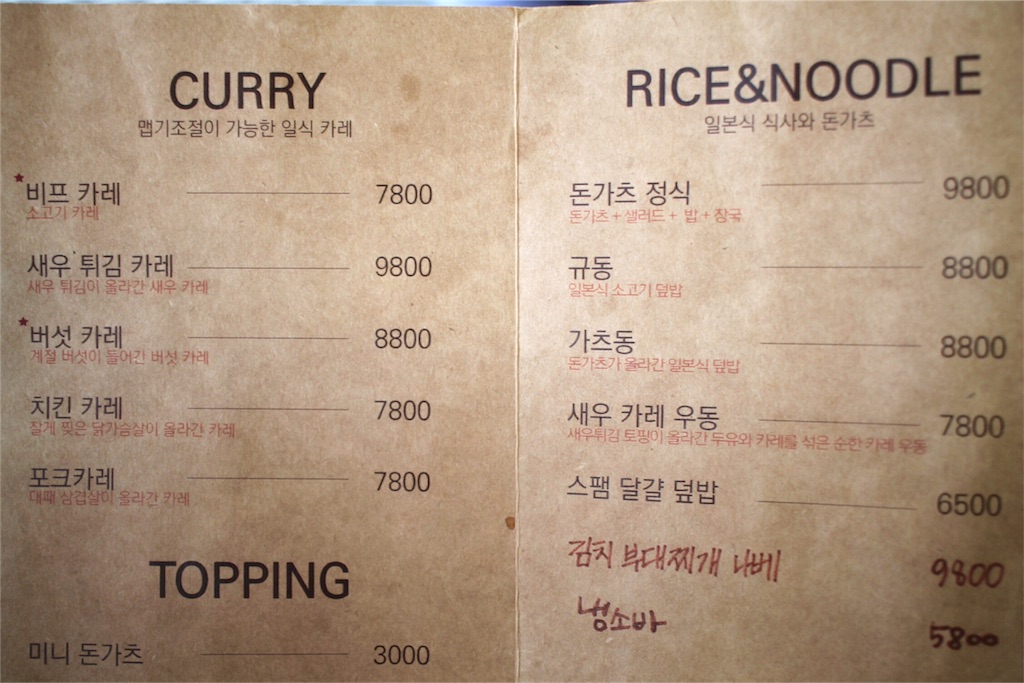 CURRY
맵기조절이 가능한 일식 카레
비프 카레 7800
소고기 카레
새우 튀김 카레 9800
새우 튀김이 올라간 새우 카레
버섯 카레 8800
계절 버섯이 들어간 버섯 카레
치킨 카레 7800
잘게 찢은 닭가슴살이 올라간 카레
포크카레 7800
대패 삼겹살이 올라간 카레
TOPPING
미니 돈가츠 3000
RICE&NOODLE
일본식 식사와 돈가츠
돈가츠 정식 9800
돈가츠 + 샐러드 + 밥 + 장국
규동 8800
일본식 소고기 덮밥
가츠동 8800
돈가츠가 올라간 일본식 덮밥
새우 카레 우동 7800
새우튀김 토핑이 올라간 두유와 카레를 섞은 순한 카레 우동
스팸 달걀 덮밥 6500
김치 부대찌개 나베 9800
냉소바 5800